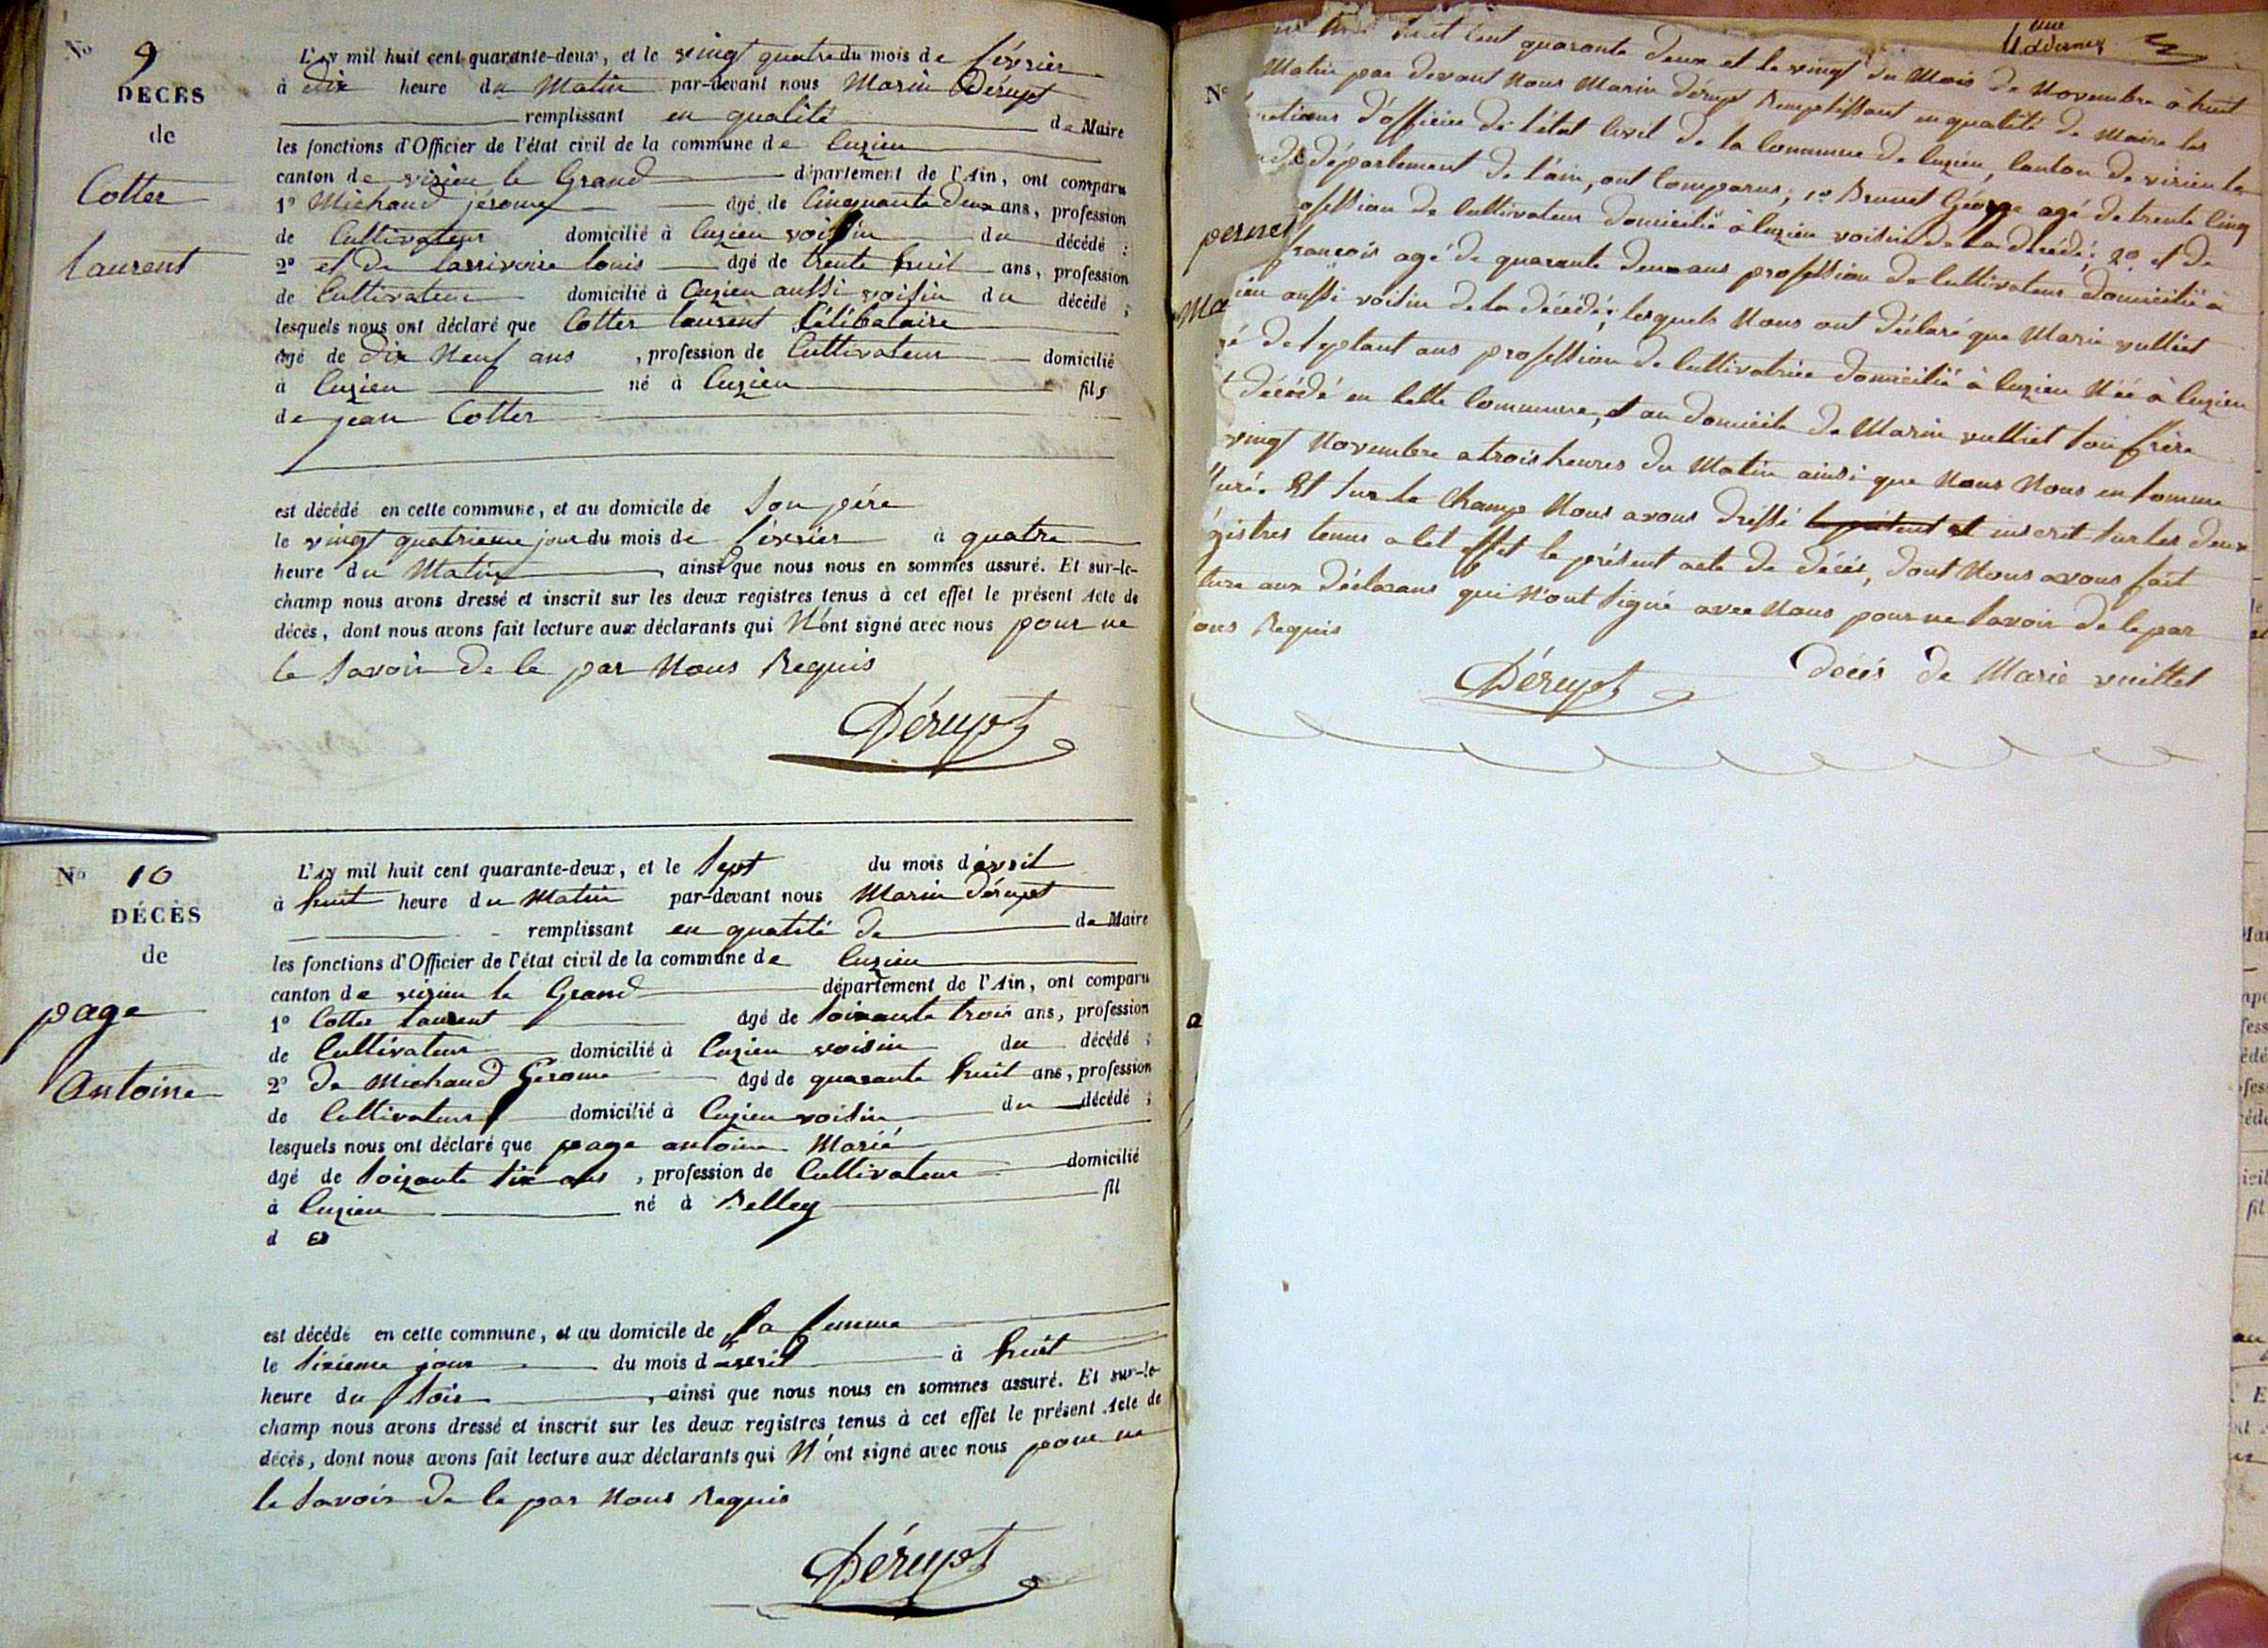 No 9
DÉCÈS
de
Cotter
Laurent
L'AN mil huit cent quarante-deux, et le vingt quatre du mois de février
à dix heure du Matin par-devant nous Marin Dérupt
remplissant en qualité de Maire
les fonctions d'Officier de l'état civil de la commune de Cuzieu
canton de virieu le Grand département de l'Ain, ont comparu
1° Michaud jérome âgé de Cinquante deux ans, profession
de Cultivateur domicilié à Cuzieu voisin du décédé ;
2° et de Larrivoire Louis âgé de trente huit ans, profession
de Cultivateur domicilié à Cuzieu aussi voisin du décédé ;
lesquels nous ont déclaré que Cotter Laurent Célibataire
âgé de dix Neuf ans , profession de Cultivateur domicilié
à Cuzieu né à Cuzieu fils
de jean Cotter
est décédé en cette commune, et au domicile de Son père
le vingt quatrieme jour du mois de février à quatre
heure du Matin , ainsi que nous nous en sommes assuré. Et sur-le-
champ nous avons dressé et inscrit sur les deux registres tenus à cet effet le présent Acte de
décès, dont nous avons fait lecture aux déclarants qui N'ont signé avec nous pour ne
le Savoir de ce par Nous Requis
Dérupt
No 10
DÉCÈS
de
page
Antoine
L'AN mil huit cent quarante-deux, et le Sept du mois d'avril
à huit heure du Matin par-devant nous Marin Dérupt
remplissant en qualité de de Maire
les fonctions d'Officier de l'état civil de la commune de Cuzieu
canton de virieu le Grand département de l'Ain, ont comparu
1° Cotter Laurent âgé de Soixante trois ans, profession
de Cultivateur domicilié à Cuzieu voisin du décédé ;
2° de Michaud Gerome âgé de quarante huit ans, profession
de Cultivateur domicilié à Cuzieu voisin du décédé ;
lesquels nous ont déclaré que page antoine Marié
âgé de Soixante Six ans , profession de Cultivateur domicilié
à Cuzieu né à Belley fil
d
est décédé en cette commune, et au domicile de Sa femme
le Sixieme jour du mois d avril à huit
heure du Soir , ainsi que nous nous en sommes assuré. Et sur-le-
champ nous avons dressé et inscrit sur les deux registres tenus à cet effet le présent Acte de
décès, dont nous avons fait lecture aux déclarants qui N'ont signé avec nous pour ne
le Savoir de ce par Nous Requis
Dérupt
huit Cent quarante deux et le vingt du Mois de Novembre à huit
Matin par devant Nous Marin dérupt Remplissant en qualité de Maire les
d'officier de l'état Civil de la Commune de Cuzieu, Canton de virieu le
département de l'ain, ont Comparus; 1° Brunet George agé de trente Cinq
de Cultivateur domicilié à Cuzieu voisin de La décédé; 2° et de
françois agé de quarante deux ans profession de Cultivateur domicilié à
aussi voisin de la décédé; lesquels Nous ont déclaré que Marie vulliet
de Septant ans profession de Cultivatrice domicilié à Cuzieu Née à Cuzieu
décédé en Cette Commune, et au domicile de Marin vulliet Son frère
vingt Novembre a trois heures du Matin ainsi que Nous Nous en Somme
Et Sur le Champ Nous avons dressé le présent et inscrit Sur les deux
tenus a Cet effet le présent acte de décès, dont Nous avons fait
aux déclarans qui N'ont Signé avec Nous pour ne Savoir de Ce par
Requis
Dérupt
décès de Marie vuillet